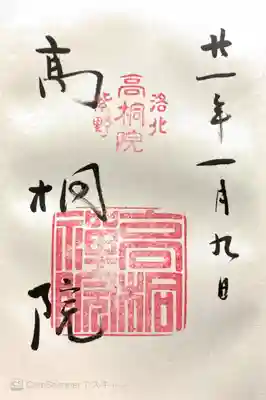 廿一年一月九日
洛北
高桐院
紫野
高桐
禪院
高桐院
CamScanner でスキャン